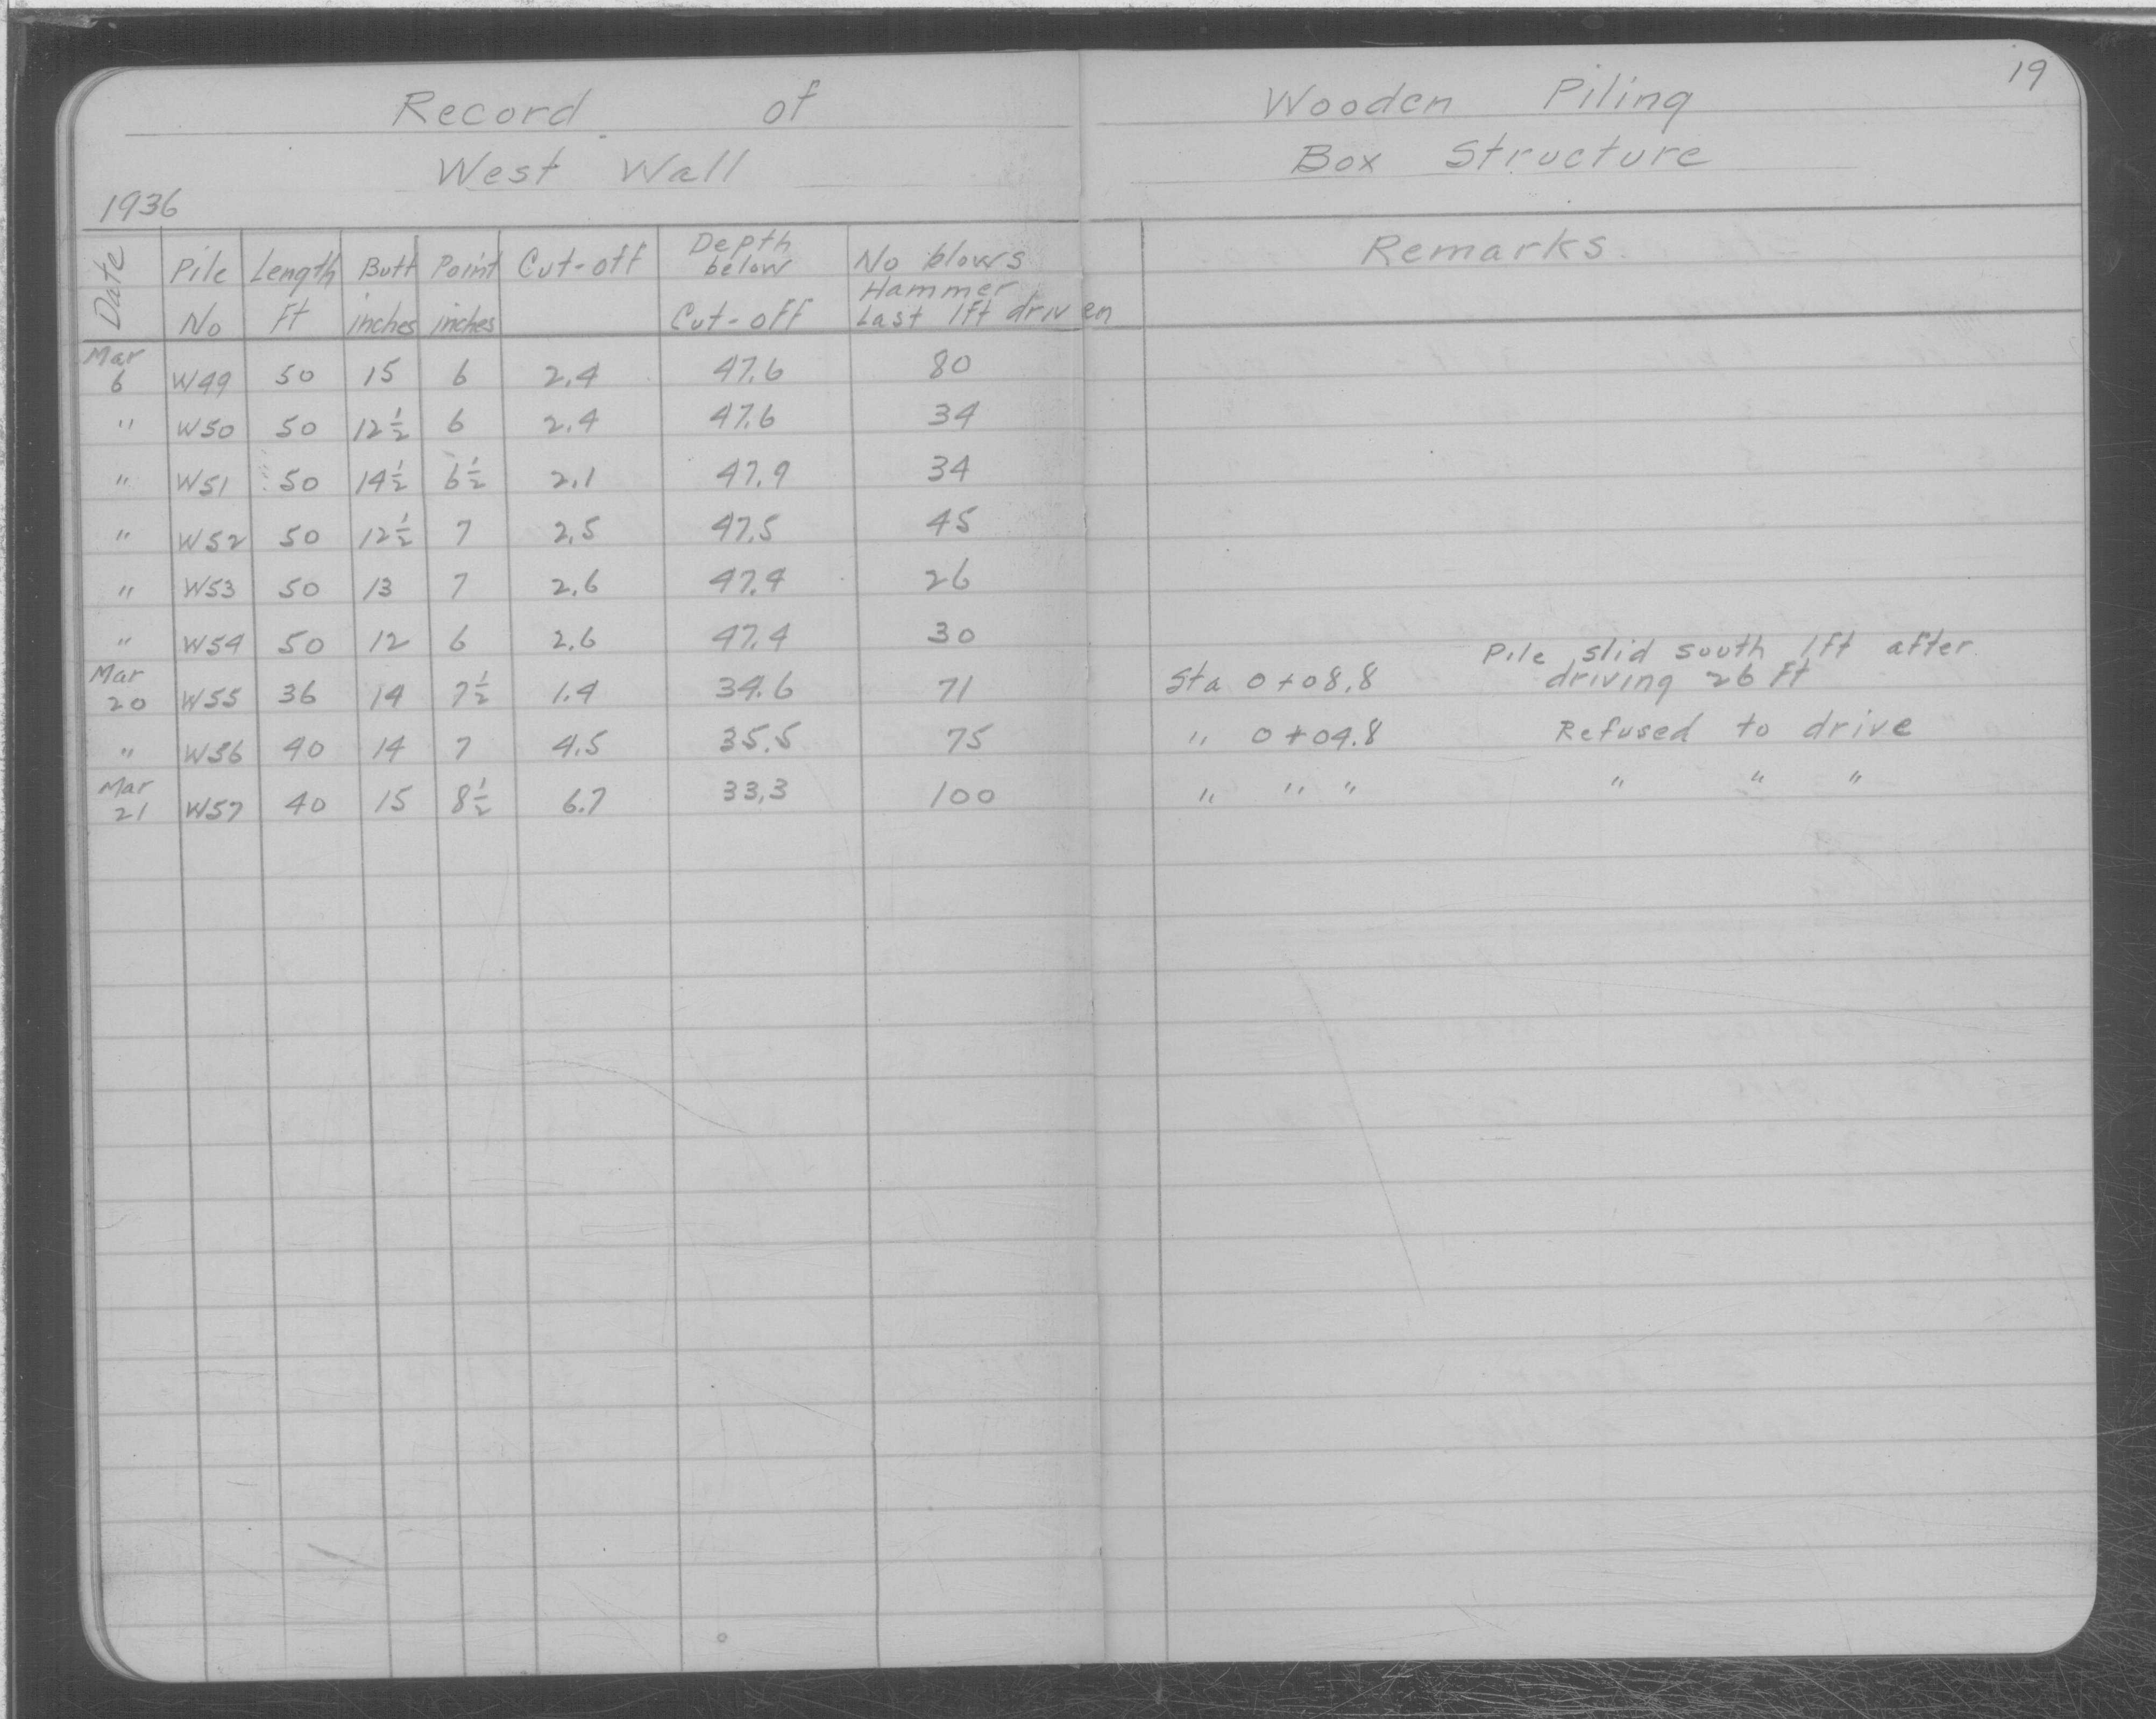 19
Record of Wooden Piling
West Wall Box Structure
1936
Date Pile No Length Ft Butt inches Point inches Cut-off Depth below Cut-off No blows Hammer Last 1ft driven Remarks
Mar 6 W49 50 15 6 2.4 47.6 80
" W50 50 12½ 6 2.4 47.6 34
" W51 50 14½ 6½ 2.1 47.9 34
" W52 50 12½ 7 2.5 47.5 45
" W53 50 13 7 2.6 47.4 26
" W54 50 12 6 2.6 47.4 30
Mar 20 W55 36 14 7½ 1.4 34.6 71 Sta 0+08.8 Pile slid south 1ft after driving 26 Ft
" W56 40 14 7 4.5 35.5 75 " 0+04.8 Refused to drive
Mar 21 W57 40 15 8½ 6.7 33.3 100 " " " " " "